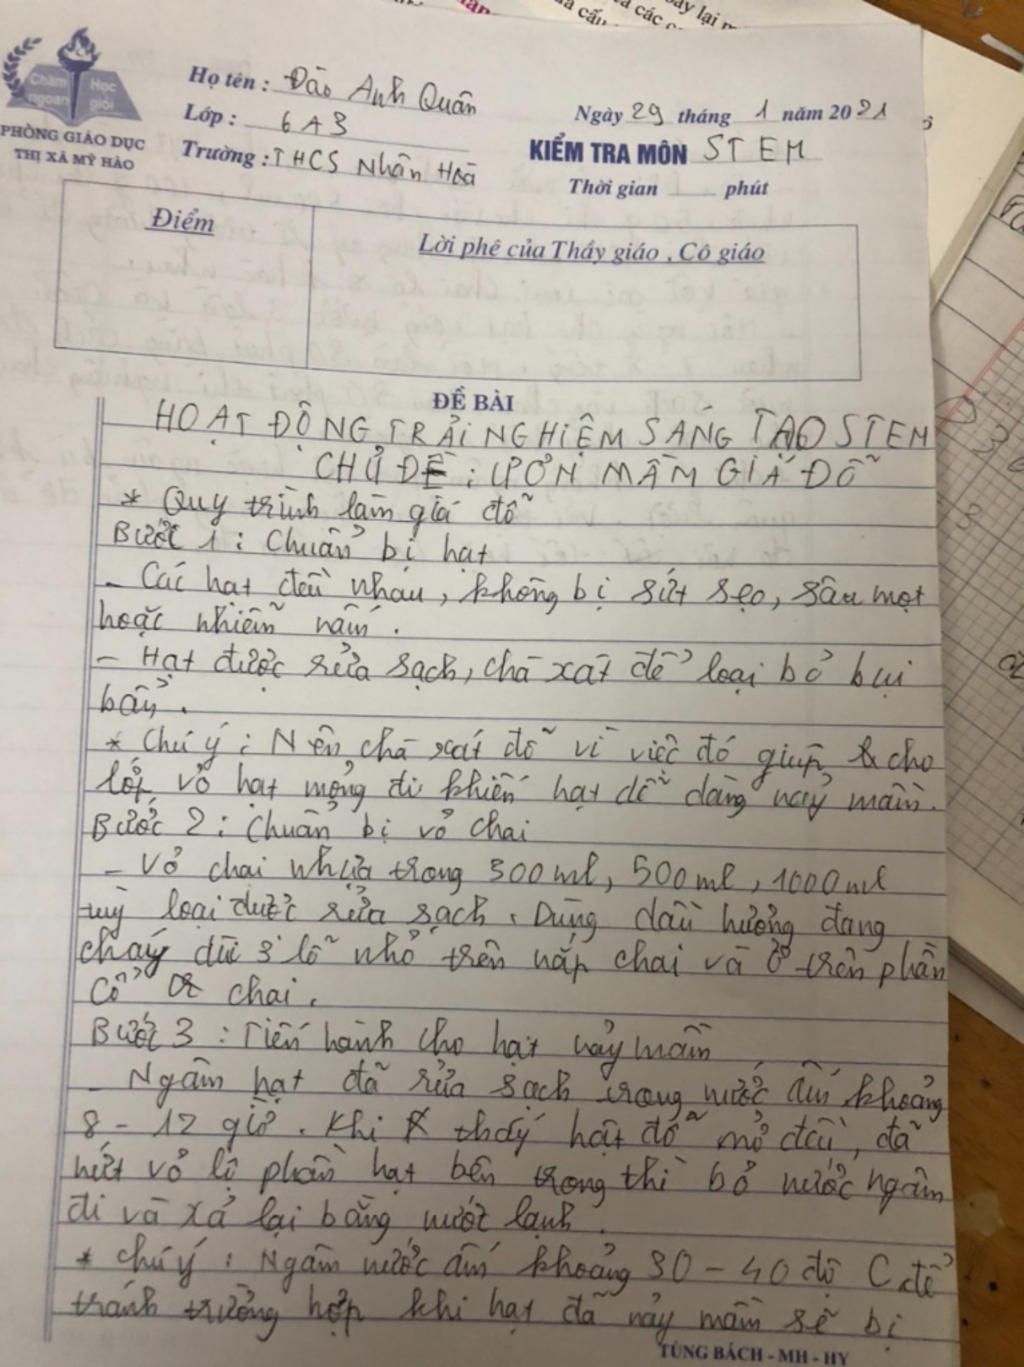 Chăm ngoan Học giỏi
PHÒNG GIÁO DỤC
THỊ XÃ MỸ HÀO
Họ tên : Đào Anh Quân
Lớp : 6A3
Trường : THCS Nhân Hoà
Ngày 29 tháng 1 năm 2021
KIỂM TRA MÔN STEM
Thời gian phút
Điểm
Lời phê của Thầy giáo , Cô giáo
ĐỀ BÀI
HOẠT ĐỘNG TRẢI NGHIỆM SÁNG TẠO STEM
CHỦ ĐỀ : ƯƠN MẦM GIÁ ĐỖ
* Quy trình làm giá đỗ
Bước 1 : Chuẩn bị hạt
- Các hạt đều nhau, không bị sứt sẹo, sâu mọt
hoặc nhiễm nấm.
- Hạt được rửa sạch, chà xát để loại bỏ bụi
bẩn.
* Chú ý : Nên chà xát đỗ vì việc đó giúp cho
lớp vỏ hạt mỏng đi khiến hạt dễ dàng nảy mầm.
Bước 2 : Chuẩn bị vỏ chai
- Vỏ chai nhựa trong 300ml, 500ml, 1000ml
tuỳ loại được rửa sạch. Dùng đầu hương đang
cháy dùi 3 lỗ nhỏ trên nắp chai và ở trên phần
cổ chai.
Bước 3 : Tiến hành cho hạt nảy mầm
- Ngâm hạt đã rửa sạch trong nước ấm khoảng
8 - 12 giờ. Khi thấy hạt đỗ mở đều, đã
nứt vỏ lộ phần hạt bên trong thì bỏ nước ngâm
đi và xả lại bằng nước lạnh.
* chú ý : Ngâm nước ấm khoảng 30 - 40 độ C để
tránh trường hợp khi hạt đã nảy mầm sẽ bị
TÙNG BÁCH - MH - HY